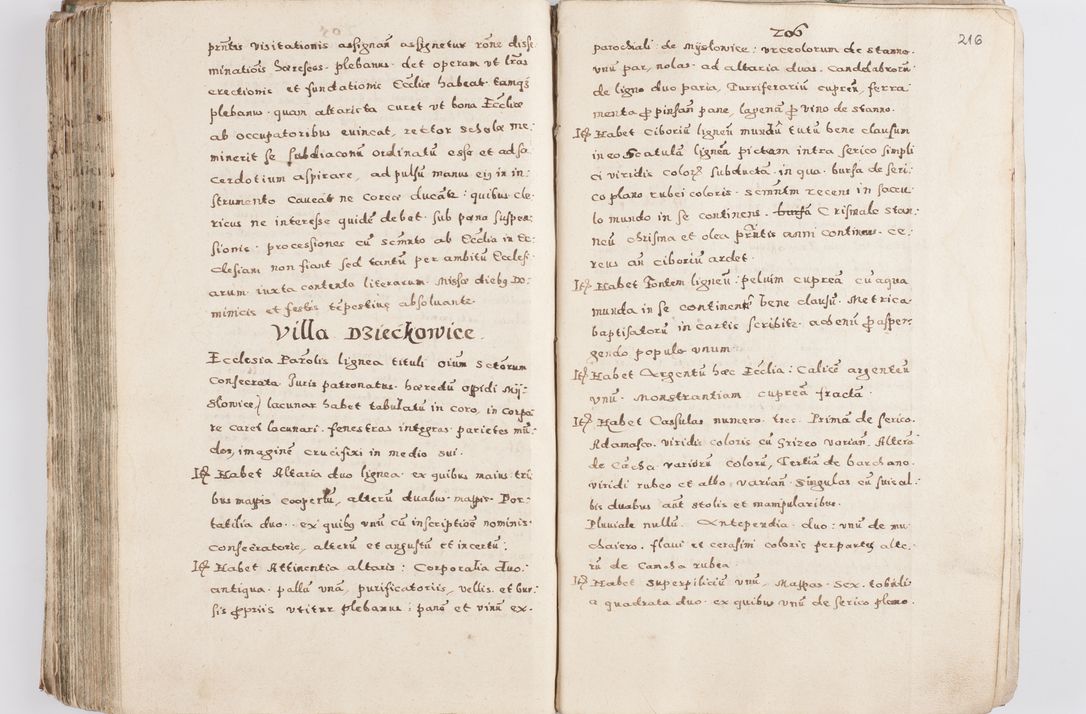 prn̄tis visitationis assignan̄ assignetur rōne disse
minatiōis hæreseos. plebanus. det operam vt lr̄as
erectionis et fundationis Ecclīæ habeat. tamqꝫ
plebanus. quam altarista curet vt bona Ecclīæ
ab occupatoribus euincat, rector scholæ me:
minerit se subdiaconū ordinatū esse et ad sa:
cerdotium aspirare, ad pulsū manus eiꝯ in in:
strumento caueat ne coreæ ducātr: quibus cle:
ricus ne interesse quidē debet. sub pœna suspen:
sionis. processiones cū scm̄nto ab Ecclīa in Ec:
clesiam non fiant sed tantū per ambitū Eccles:
arum. iuxta contenta literarum. Missæ diebꝯ Do:
minicis et festis tēpestiue absoluantr
Villa Dziećkowice.
Ecclesia Paroḷis lignea tituli oīum Sctōrum
Consecrata Iuris patronatus. hæredū oppidi Mÿ:
słowice, lacunar habet tabulatū in coro, in corpo
re caret lacunari. fenestras integras. parietes mū:
dos, imaginē crucifixi in medio sui.
Itē Habet Altaria duo lignea. ex quibus maius tri
bus mappis coopertū, alterū duabus mappis. Por:
tatilia duo. ex quibꝯ vnū cū inscriptiōe nominis.
Consecratoris, alterū et angustū et incertū.
Itē Habet Attinentia altaris: Corporalia duo.
antiqua. pallā vnā, purificatoriis, vellis. et bur:
sis ꝓpriis vtitur plebanus: panē et vinū ex.
206
216
parochiali de Mÿsłowice: vrceolorum de stanno.
vnū par, nolas. ad altaria duas. Candelabrorū
de ligno duo paria, Turriferariū cupreū, ferra:
menta ꝓ pinsān pane, lagenā ꝓ vino de stanno.
Itē Habet Ciboriū ligneū mundū tutū bene clausum
in eo Scatulā ligneā pictam intra serico simpli
ci viridis colorꝭ subductā. in qua. bursa de seri:
co plano rubei coloris. scm̄ntm recens in saccu
lo mundo in se continens. bursā Crismale stan:
neū chrisma et olea prn̄tis anni continens. ce:
reus an̄ ciboriū ardet.
Itē Habet Fontem ligneū: peluim cupreā cū aqua
munda in se continentē bene clausū. Metrica
baptisatorū in cartis scribitr. aḥenū ꝓ asper:
gendo populo vnum.
Itē Habet Argentū hæc Ecclīa: Calicē argenteū
vnū. Monstrantiam cupreā fractā.
Itē Habet Cassulas numero. tres. Prima de serico.
Adamasco. viridis coloris cū Grizeo varian̄. Alterā
de Camcha variorū colorū, Tertiā de barchano.
viridi rubeo et albo. varian̄. Singulas cū suis al:
bis duabus aūt stolis et manipularibus.
Pluuiale nullū. Antependia. duo: vnū de mu
chaiero. flaui et cerasini coloris per partes alte:
rū de Camcha rubea.
Itē Habet Superpiliciū vnū, Mappas. Sex. tobali
a quadrata duo. ex quibus vnū de serico plano.